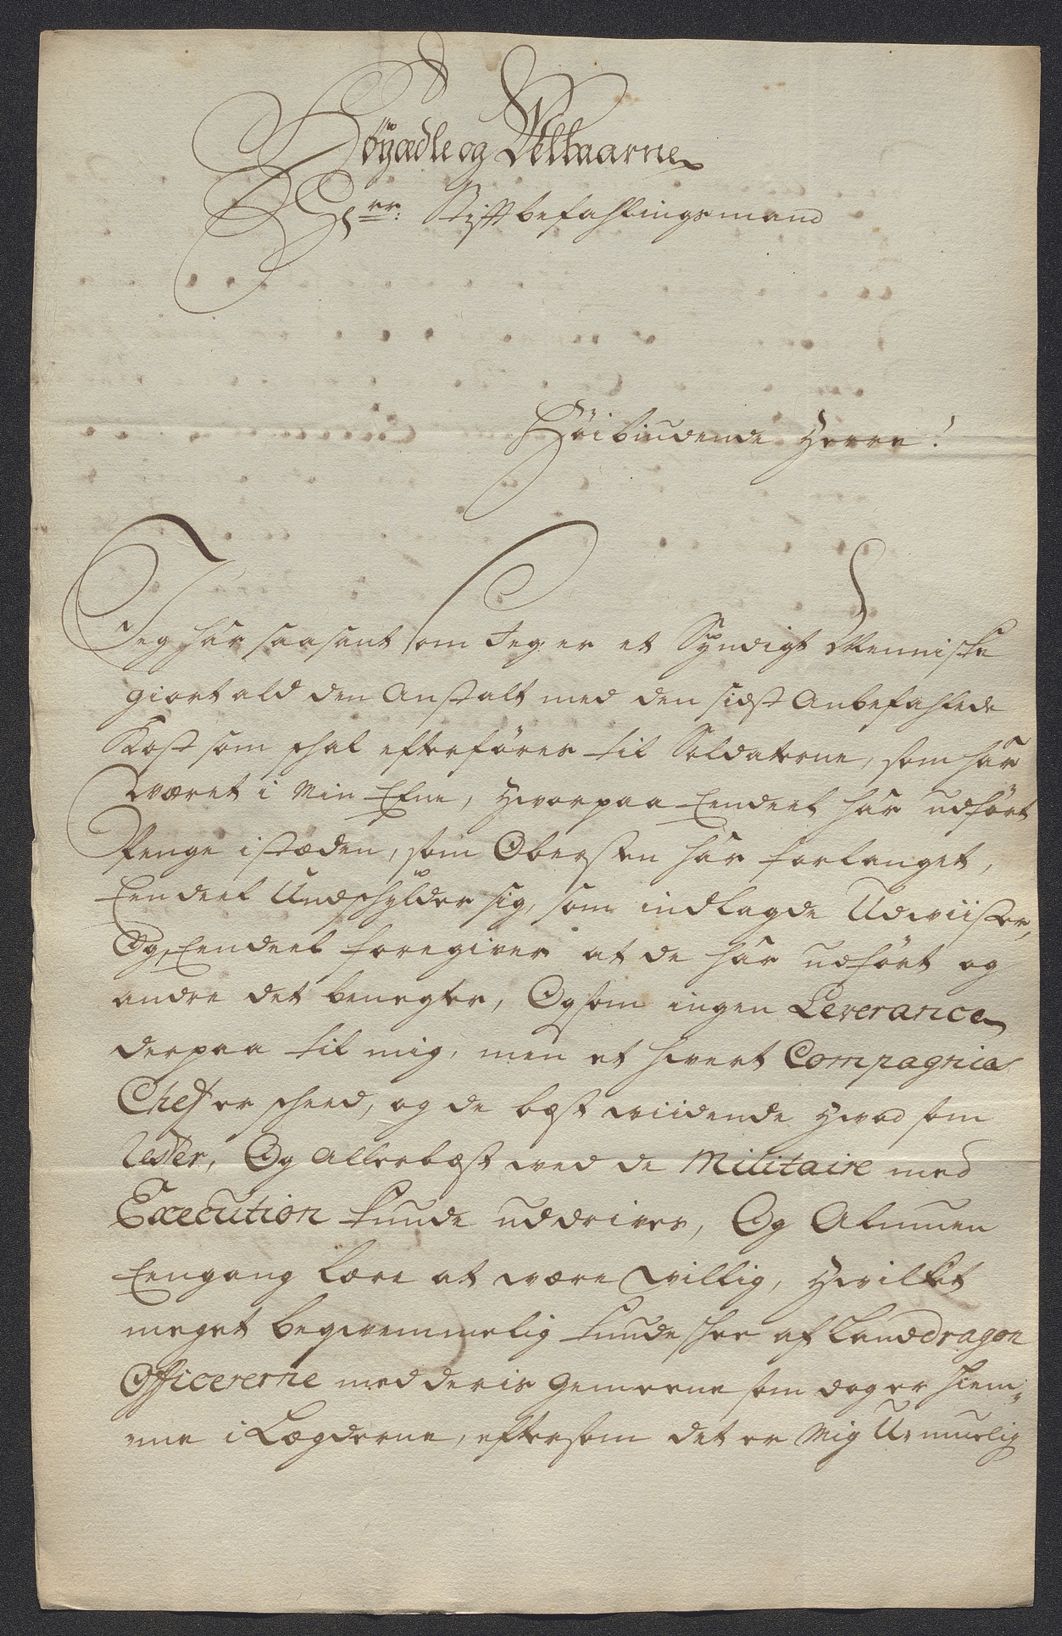 Höyædle og Velbaarne
Hr: Stiftbefahlingsmand
Höibiudende Herre!
Jeg har saasant som Jeg er et Syndigt Menniske
giort ald den Anstalt med den sidst Anbefahlede
Kost som skal efterföres til Soldaterne, som har
været i Min Efne, hvorpaa Eendeel har udfört
Penge istæden, som Obersten har forlanget,
Eendeel Undskylder sig, som indlagde Udviiser,
Og Eendeel foregiver at de har udfört og
andre det benegter, Og som ingen Leverance
derpaa til mig, men et hvert Compagnie
Chef er skeed, og de best viidende hvad som
rester, Og Allerbæst ved de Militaire med
Execution kunde uddrives, Og Almuen
Eengang lære at være villig, hvilket
meget beqvemmelig kunde skee af Landdragon
Officererne med deris Gemeene som dog er hiem,,
me i Lægderne, eftersom det er Mig U,muelig